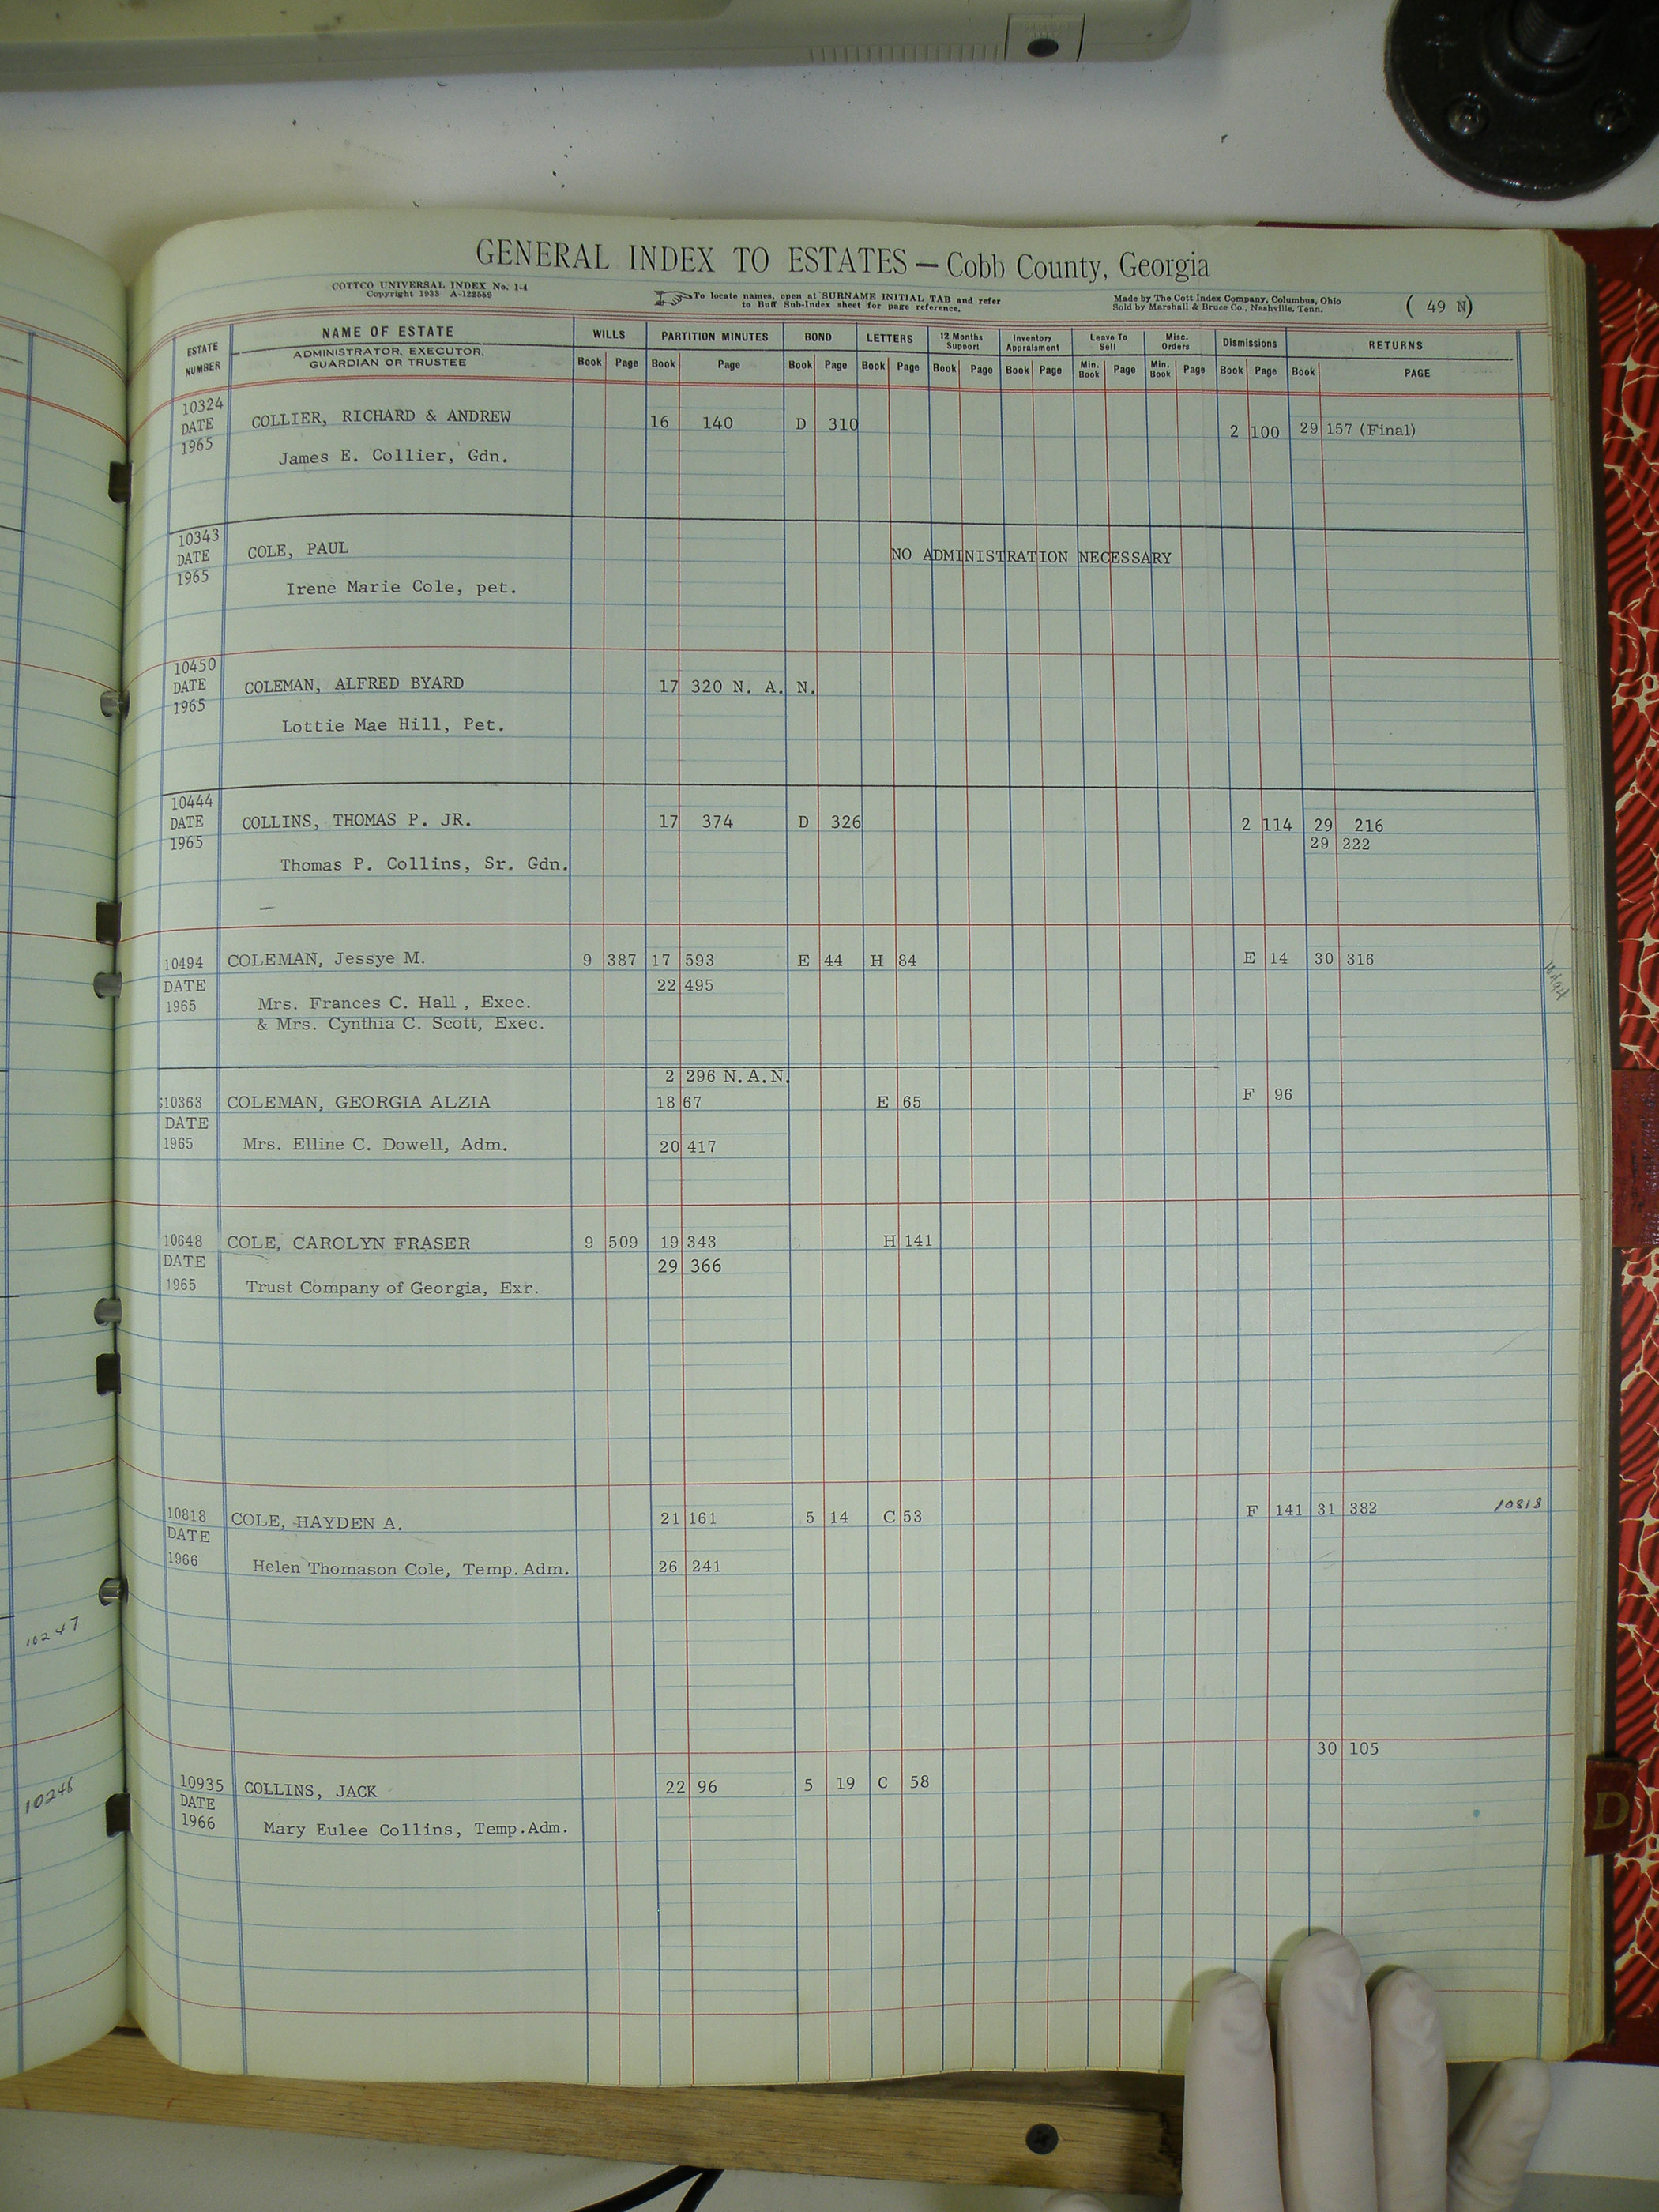 GENERAL INDEX TO ESTATES — Cobb County, Georgia
COTTCO UNIVERSAL INDEX No. 1-4
Copyright 1933 A-122559
To locate names, open at SURNAME INITIAL TAB and refer
to Buff Sub-Index sheet for page reference.
Made by The Cott Index Company, Columbus, Ohio
Sold by Marshall & Bruce Co., Nashville, Tenn.
( 49 N)
ESTATE NUMBER
NAME OF ESTATE
ADMINISTRATOR, EXECUTOR,
GUARDIAN OR TRUSTEE
WILLS PARTITION MINUTES BOND LETTERS 12 Months Support Inventory Appraisment Leave To Sell Misc. Orders Dismissions RETURNS
Book Page Book Page Book Page Book Page Book Page Book Page Min. Book Page Min. Book Page Book Page Book PAGE
10324
DATE
1965
COLLIER, RICHARD & ANDREW 16 140 D 310 2 100 29 157 (Final)
James E. Collier, Gdn.
10343
DATE
1965
COLE, PAUL NO ADMINISTRATION NECESSARY
Irene Marie Cole, pet.
10450
DATE
1965
COLEMAN, ALFRED BYARD 17 320 N. A. N.
Lottie Mae Hill, Pet.
10444
DATE
1965
COLLINS, THOMAS P. JR. 17 374 D 326 2 114 29 216
29 222
Thomas P. Collins, Sr. Gdn.
10494 COLEMAN, Jessye M. 9 387 17 593 E 44 H 84 E 14 30 316
DATE 22 495
1965 Mrs. Frances C. Hall , Exec.
& Mrs. Cynthia C. Scott, Exec.
2 296 N.A.N.
10363 COLEMAN, GEORGIA ALZIA 18 67 E 65 F 96
DATE
1965 Mrs. Elline C. Dowell, Adm. 20 417
10648 COLE, CAROLYN FRASER 9 509 19 343 H 141
DATE 29 366
1965 Trust Company of Georgia, Exr.
10818 COLE, HAYDEN A. 21 161 5 14 C 53 F 141 31 382 10818
DATE
1966 Helen Thomason Cole, Temp. Adm. 26 241
10247
30 105
10935 COLLINS, JACK 22 96 5 19 C 58
DATE
1966 Mary Eulee Collins, Temp.Adm.
10246
D